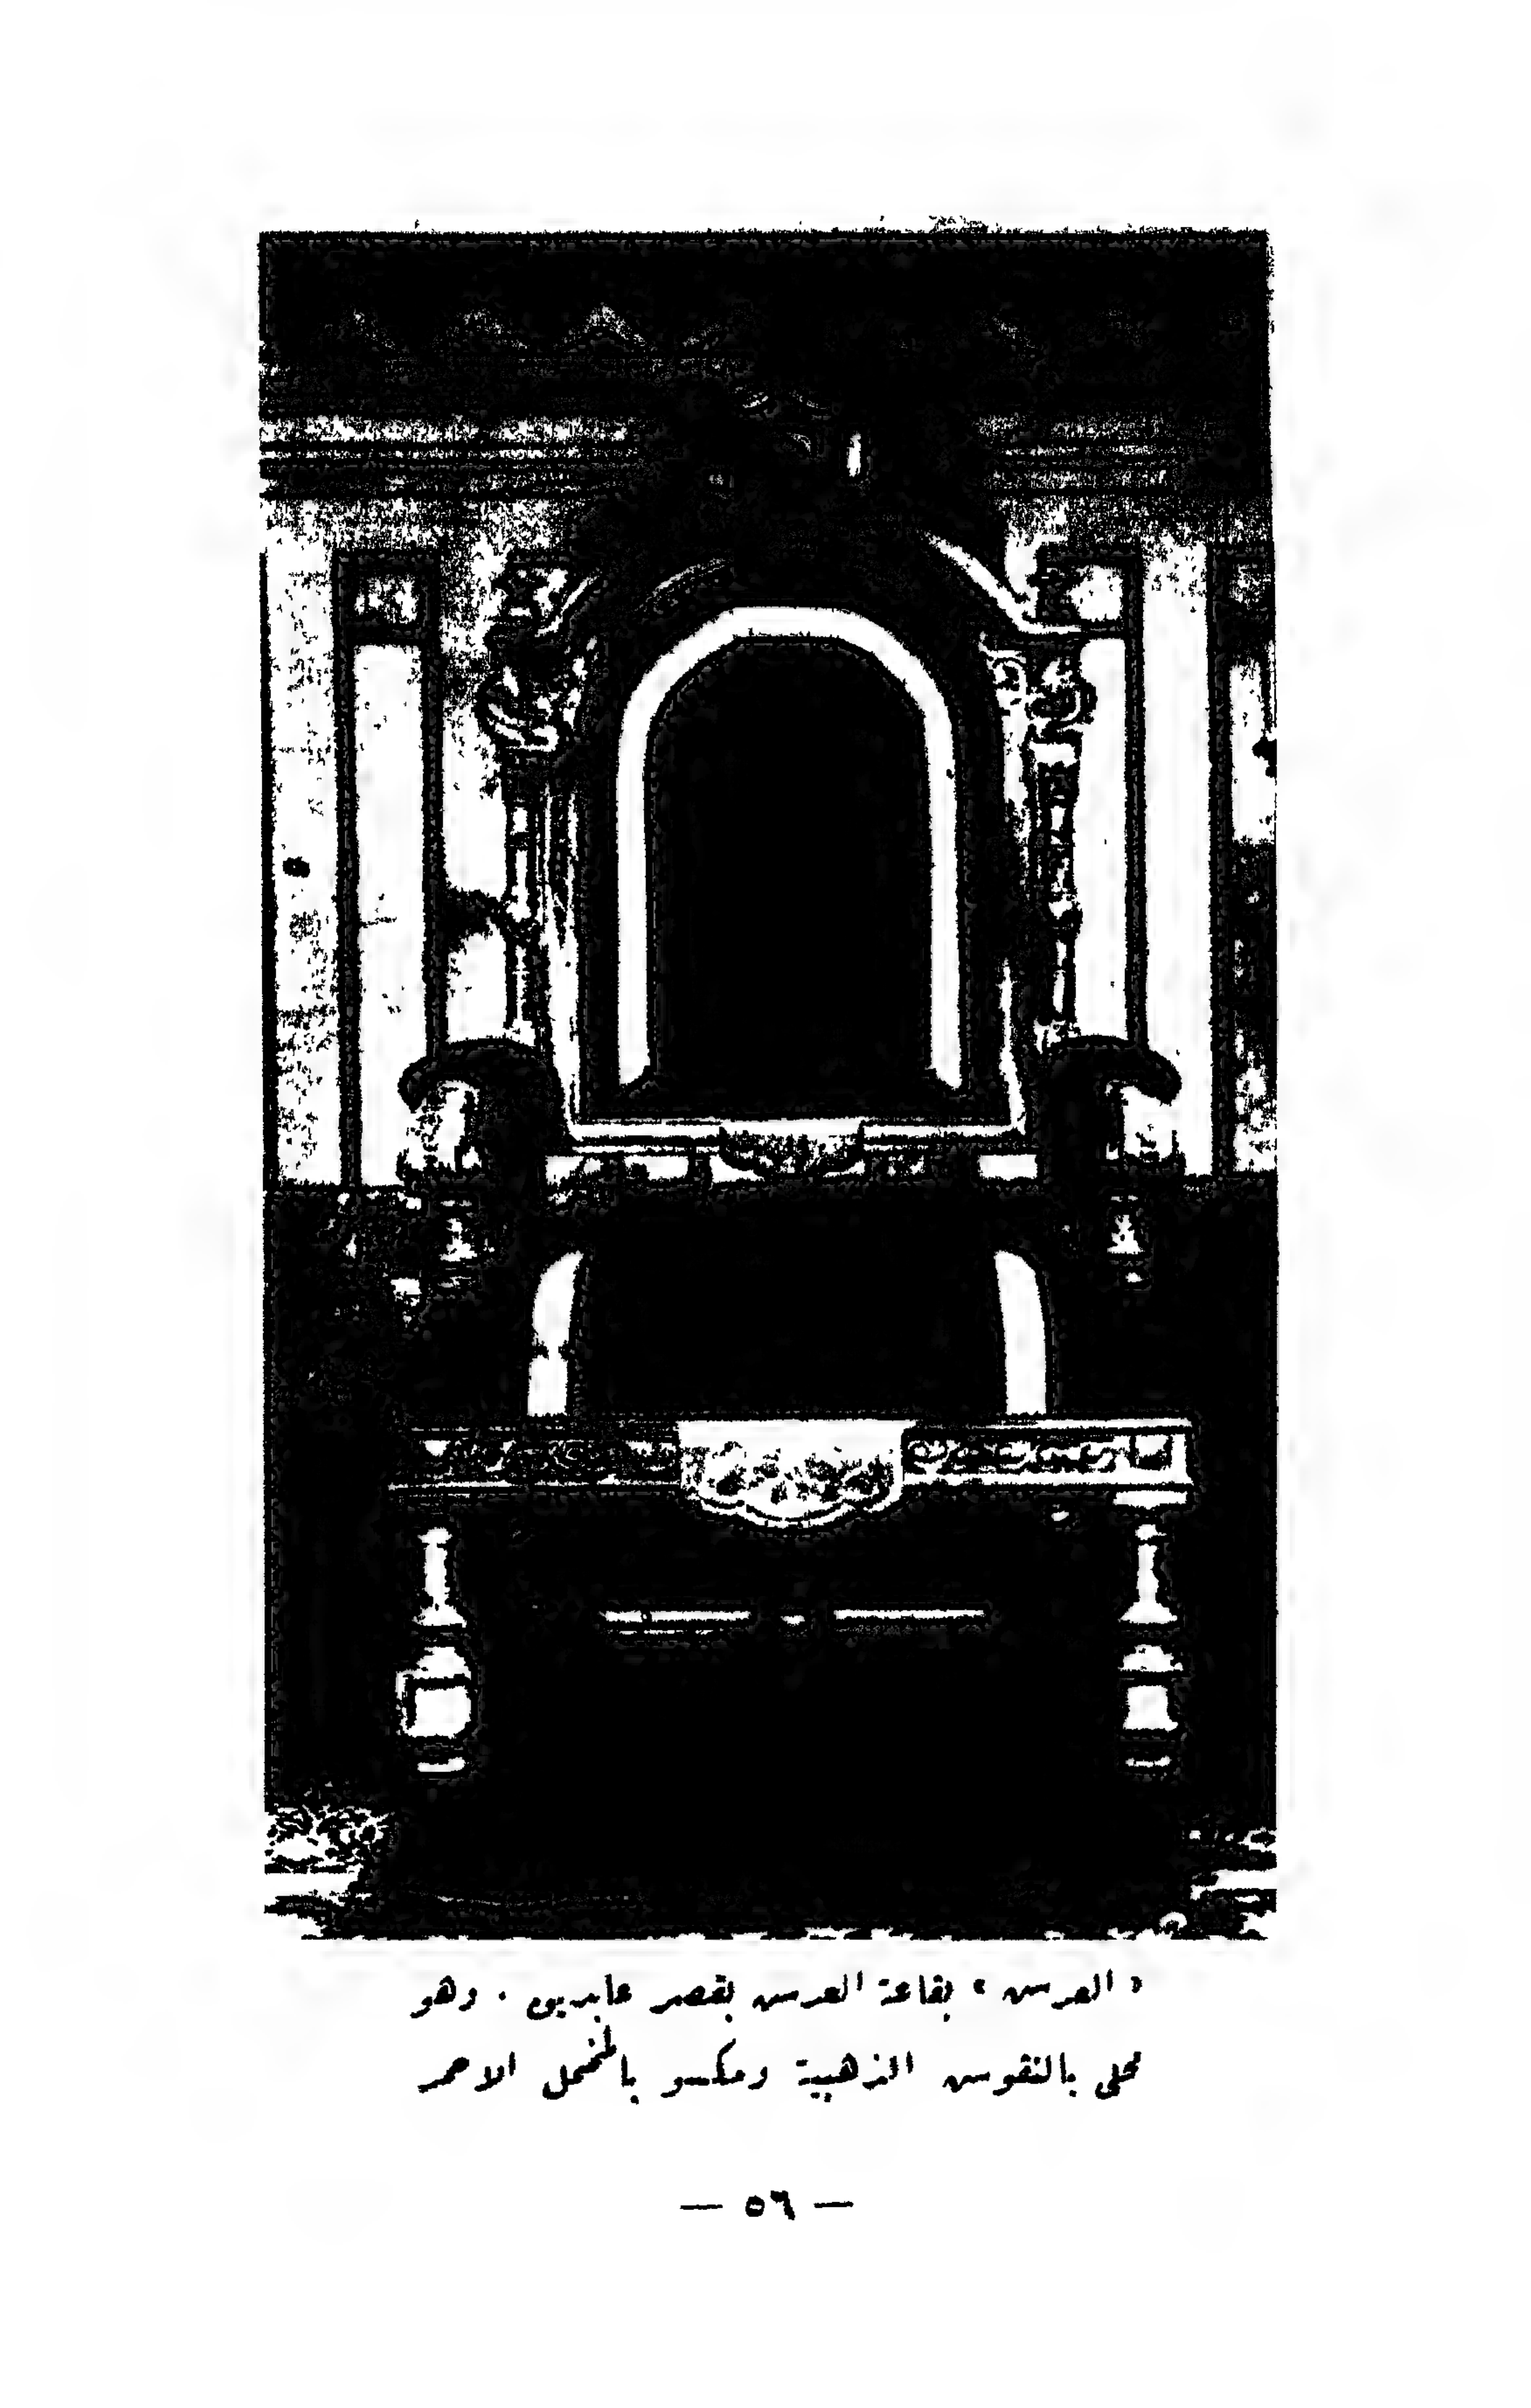 « العرش » بقاعة العرش بقصر عابدين . وهو
محلى بالنقوش الذهبية ومكسو بالمخمل الاحمر
— ٥٦ —